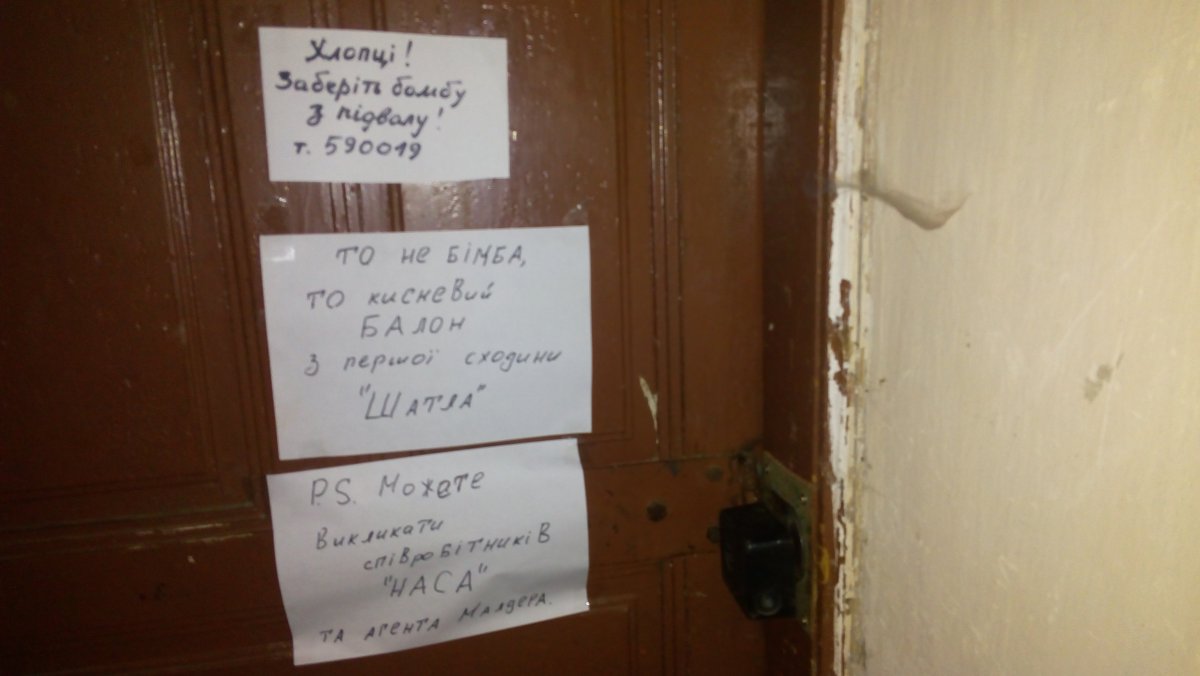 Хлопці!
Заберіть бомбу
з підвалу!
т. 590019
ТО НЕ БІМБА,
ТО кисневий
БАЛОН
з першої сходини
"ШАТЛА"
P.S. Можете
викликати
співробітників
"НАСА"
та агента Малдера.